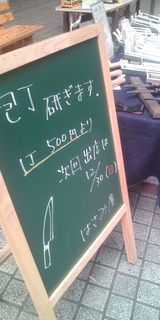 包丁研ぎます。
1丁 500円より
次回出店は
12/30(日)
はさみ屋